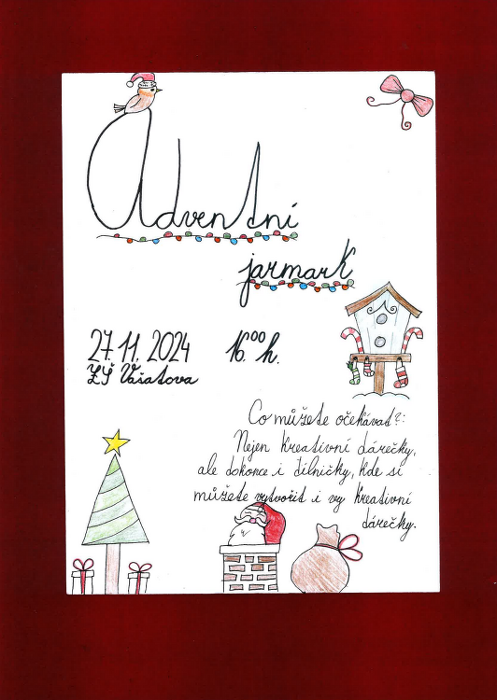 Adventní
jarmark
27.11.2024 16⁰⁰ h.
ZŠ Vašatova
Co můžete očekávat?:
Nejen kreativní dárečky,
ale dokonce i dílničky, kde si
můžete vytvořit i vy kreativní
dárečky.